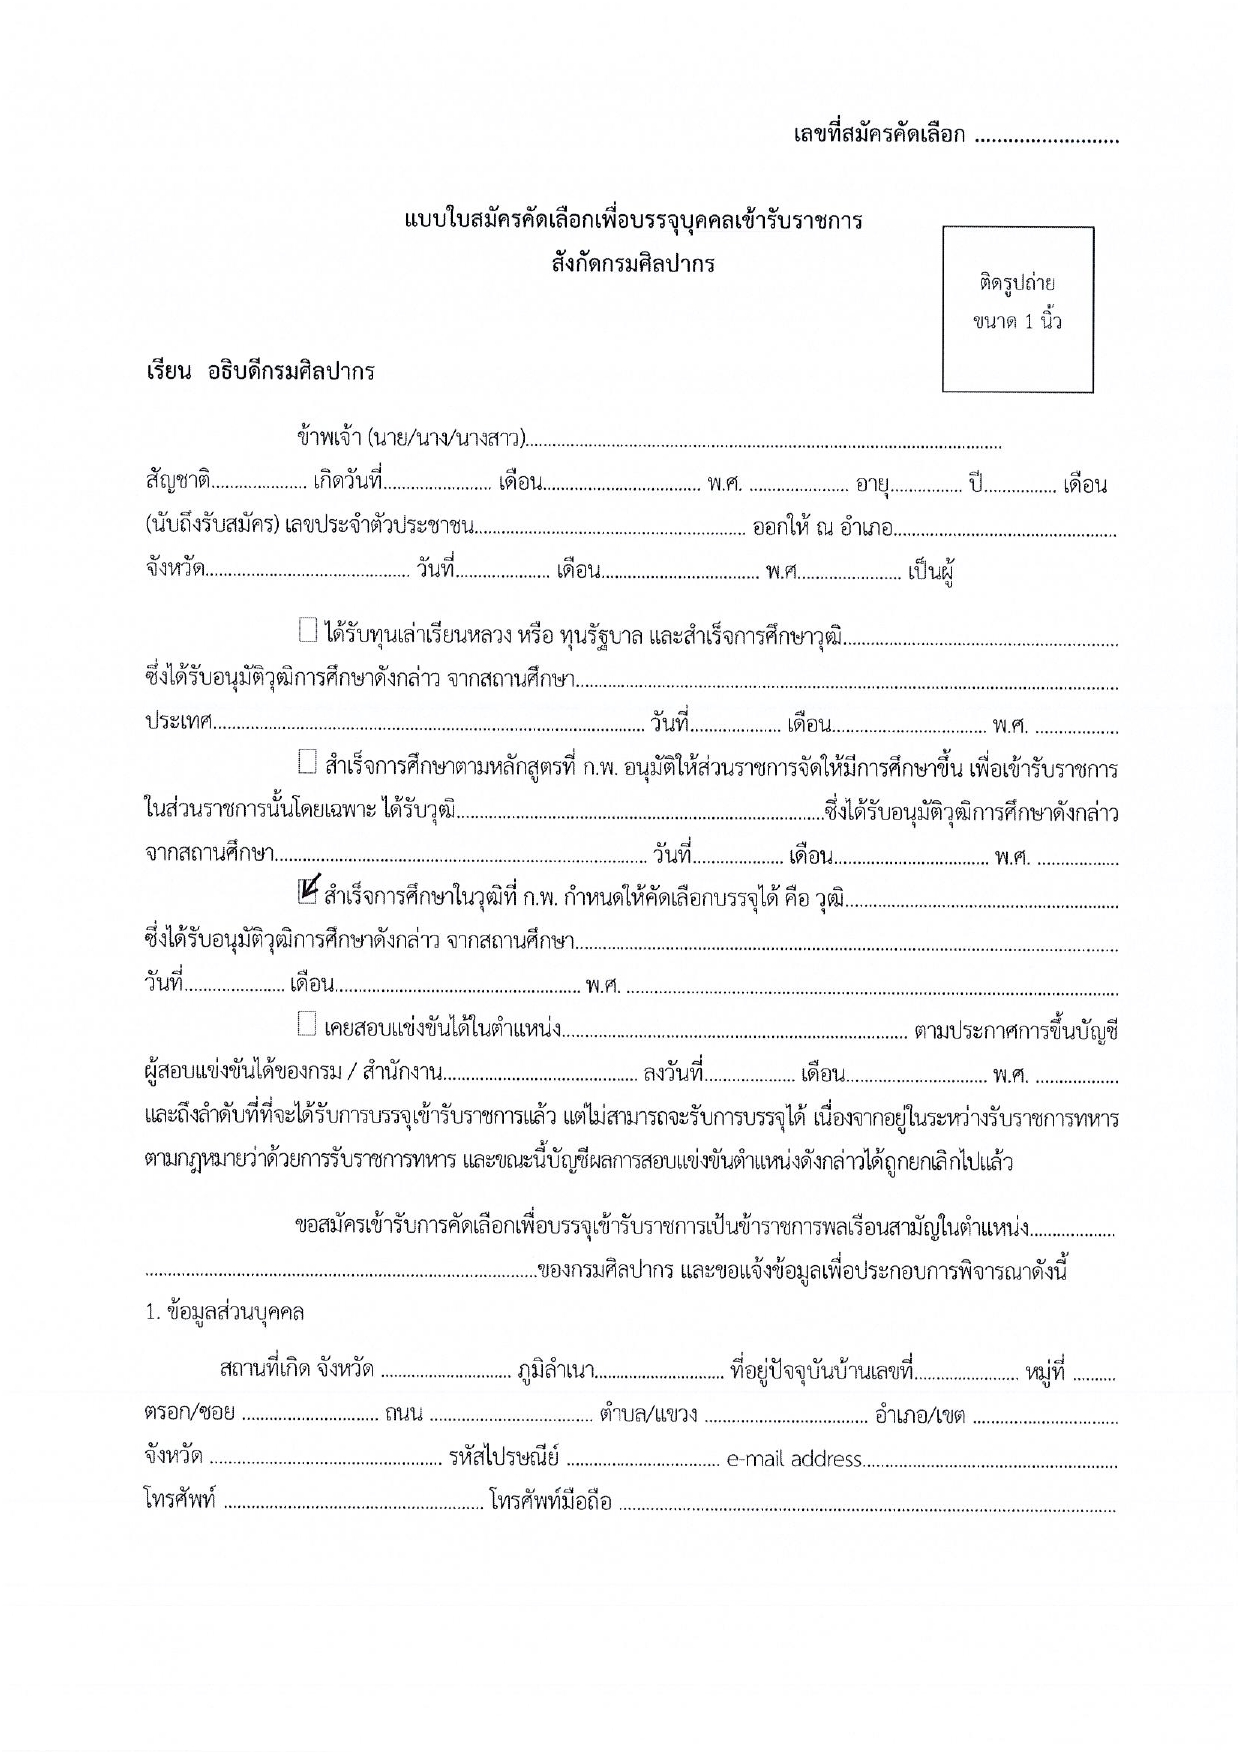 เลขที่สมัครคัดเลือก ..........................
แบบใบสมัครคัดเลือกเพื่อบรรจุบุคคลเข้ารับราชการ
สังกัดกรมศิลปากร
ติดรูปถ่าย
ขนาด 1 นิ้ว
เรียน อธิบดีกรมศิลปากร
ข้าพเจ้า (นาย/นาง/นางสาว)..........................................................
สัญชาติ.................... เกิดวันที่...................... เดือน................................ พ.ศ. .................... อายุ............... ปี............... เดือน
(นับถึงรับสมัคร) เลขประจำตัวประชาชน....................................................... ออกให้ ณ อำเภอ..............................................
จังหวัด.......................................... วันที่.................... เดือน................................ พ.ศ...................... เป็นผู้
ได้รับทุนเล่าเรียนหลวง หรือ ทุนรัฐบาล และสำเร็จการศึกษาวุฒิ........................................................
ซึ่งได้รับอนุมัติวุฒิการศึกษาดังกล่าว จากสถานศึกษา..............................................................
ประเทศ.......................................................... วันที่................... เดือน................................ พ.ศ. .................
สำเร็จการศึกษาตามหลักสูตรที่ ก.พ. อนุมัติให้ส่วนราชการจัดให้มีการศึกษาขึ้น เพื่อเข้ารับราชการ
ในส่วนราชการนั้นโดยเฉพาะ ได้รับวุฒิ..........................................................ซึ่งได้รับอนุมัติวุฒิการศึกษาดังกล่าว
จากสถานศึกษา.......................................................... วันที่................... เดือน................................ พ.ศ. .................
สำเร็จการศึกษาในวุฒิที่ ก.พ. กำหนดให้คัดเลือกบรรจุได้ คือ วุฒิ........................................................
ซึ่งได้รับอนุมัติวุฒิการศึกษาดังกล่าว จากสถานศึกษา..............................................................
วันที่..................... เดือน.................................................. พ.ศ. ..............................................................
เคยสอบแข่งขันได้ในตำแหน่ง.......................................................... ตามประกาศการขึ้นบัญชี
ผู้สอบแข่งขันได้ของกรม / สำนักงาน........................................ ลงวันที่................... เดือน............................. พ.ศ. .................
และถึงลำดับที่ที่จะได้รับการบรรจุเข้ารับราชการแล้ว แต่ไม่สามารถจะรับการบรรจุได้ เนื่องจากอยู่ในระหว่างรับราชการทหาร
ตามกฎหมายว่าด้วยการรับราชการทหาร และขณะนี้บัญชีผลการสอบแข่งขันตำแหน่งดังกล่าวได้ถูกยกเลิกไปแล้ว
ขอสมัครเข้ารับการคัดเลือกเพื่อบรรจุเข้ารับราชการเป็นข้าราชการพลเรือนสามัญในตำแหน่ง..................
..........................................................ของกรมศิลปากร และขอแจ้งข้อมูลเพื่อประกอบการพิจารณาดังนี้
1. ข้อมูลส่วนบุคคล
สถานที่เกิด จังหวัด ........................... ภูมิลำเนา........................... ที่อยู่ปัจจุบันบ้านเลขที่..................... หมู่ที่ .........
ตรอก/ซอย ............................ ถนน .................................. ตำบล/แขวง .................................. อำเภอ/เขต ..............................
จังหวัด ................................................ รหัสไปรษณีย์ ................................ e-mail address.....................................................
โทรศัพท์ ...................................................... โทรศัพท์มือถือ ..............................................................